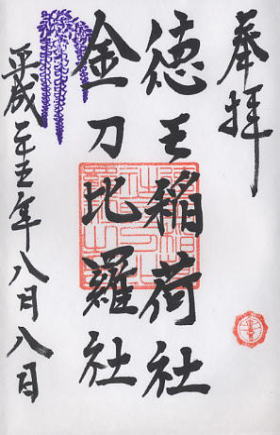 奉拝
徳王稲荷社
金刀比羅社
平成二十五年八月八日